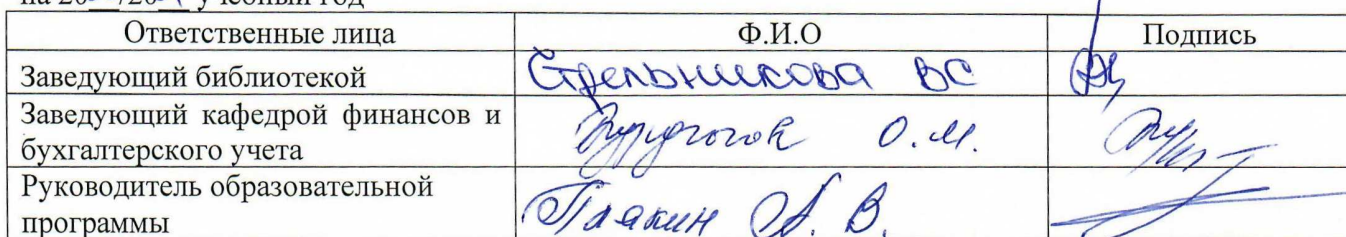 учебный год
Ответственные лица Ф.И.О Подпись
Заведующий библиотекой Стрельникова ВС
Заведующий кафедрой финансов и
бухгалтерского учета О.М.
Руководитель образовательной
программы А. В.